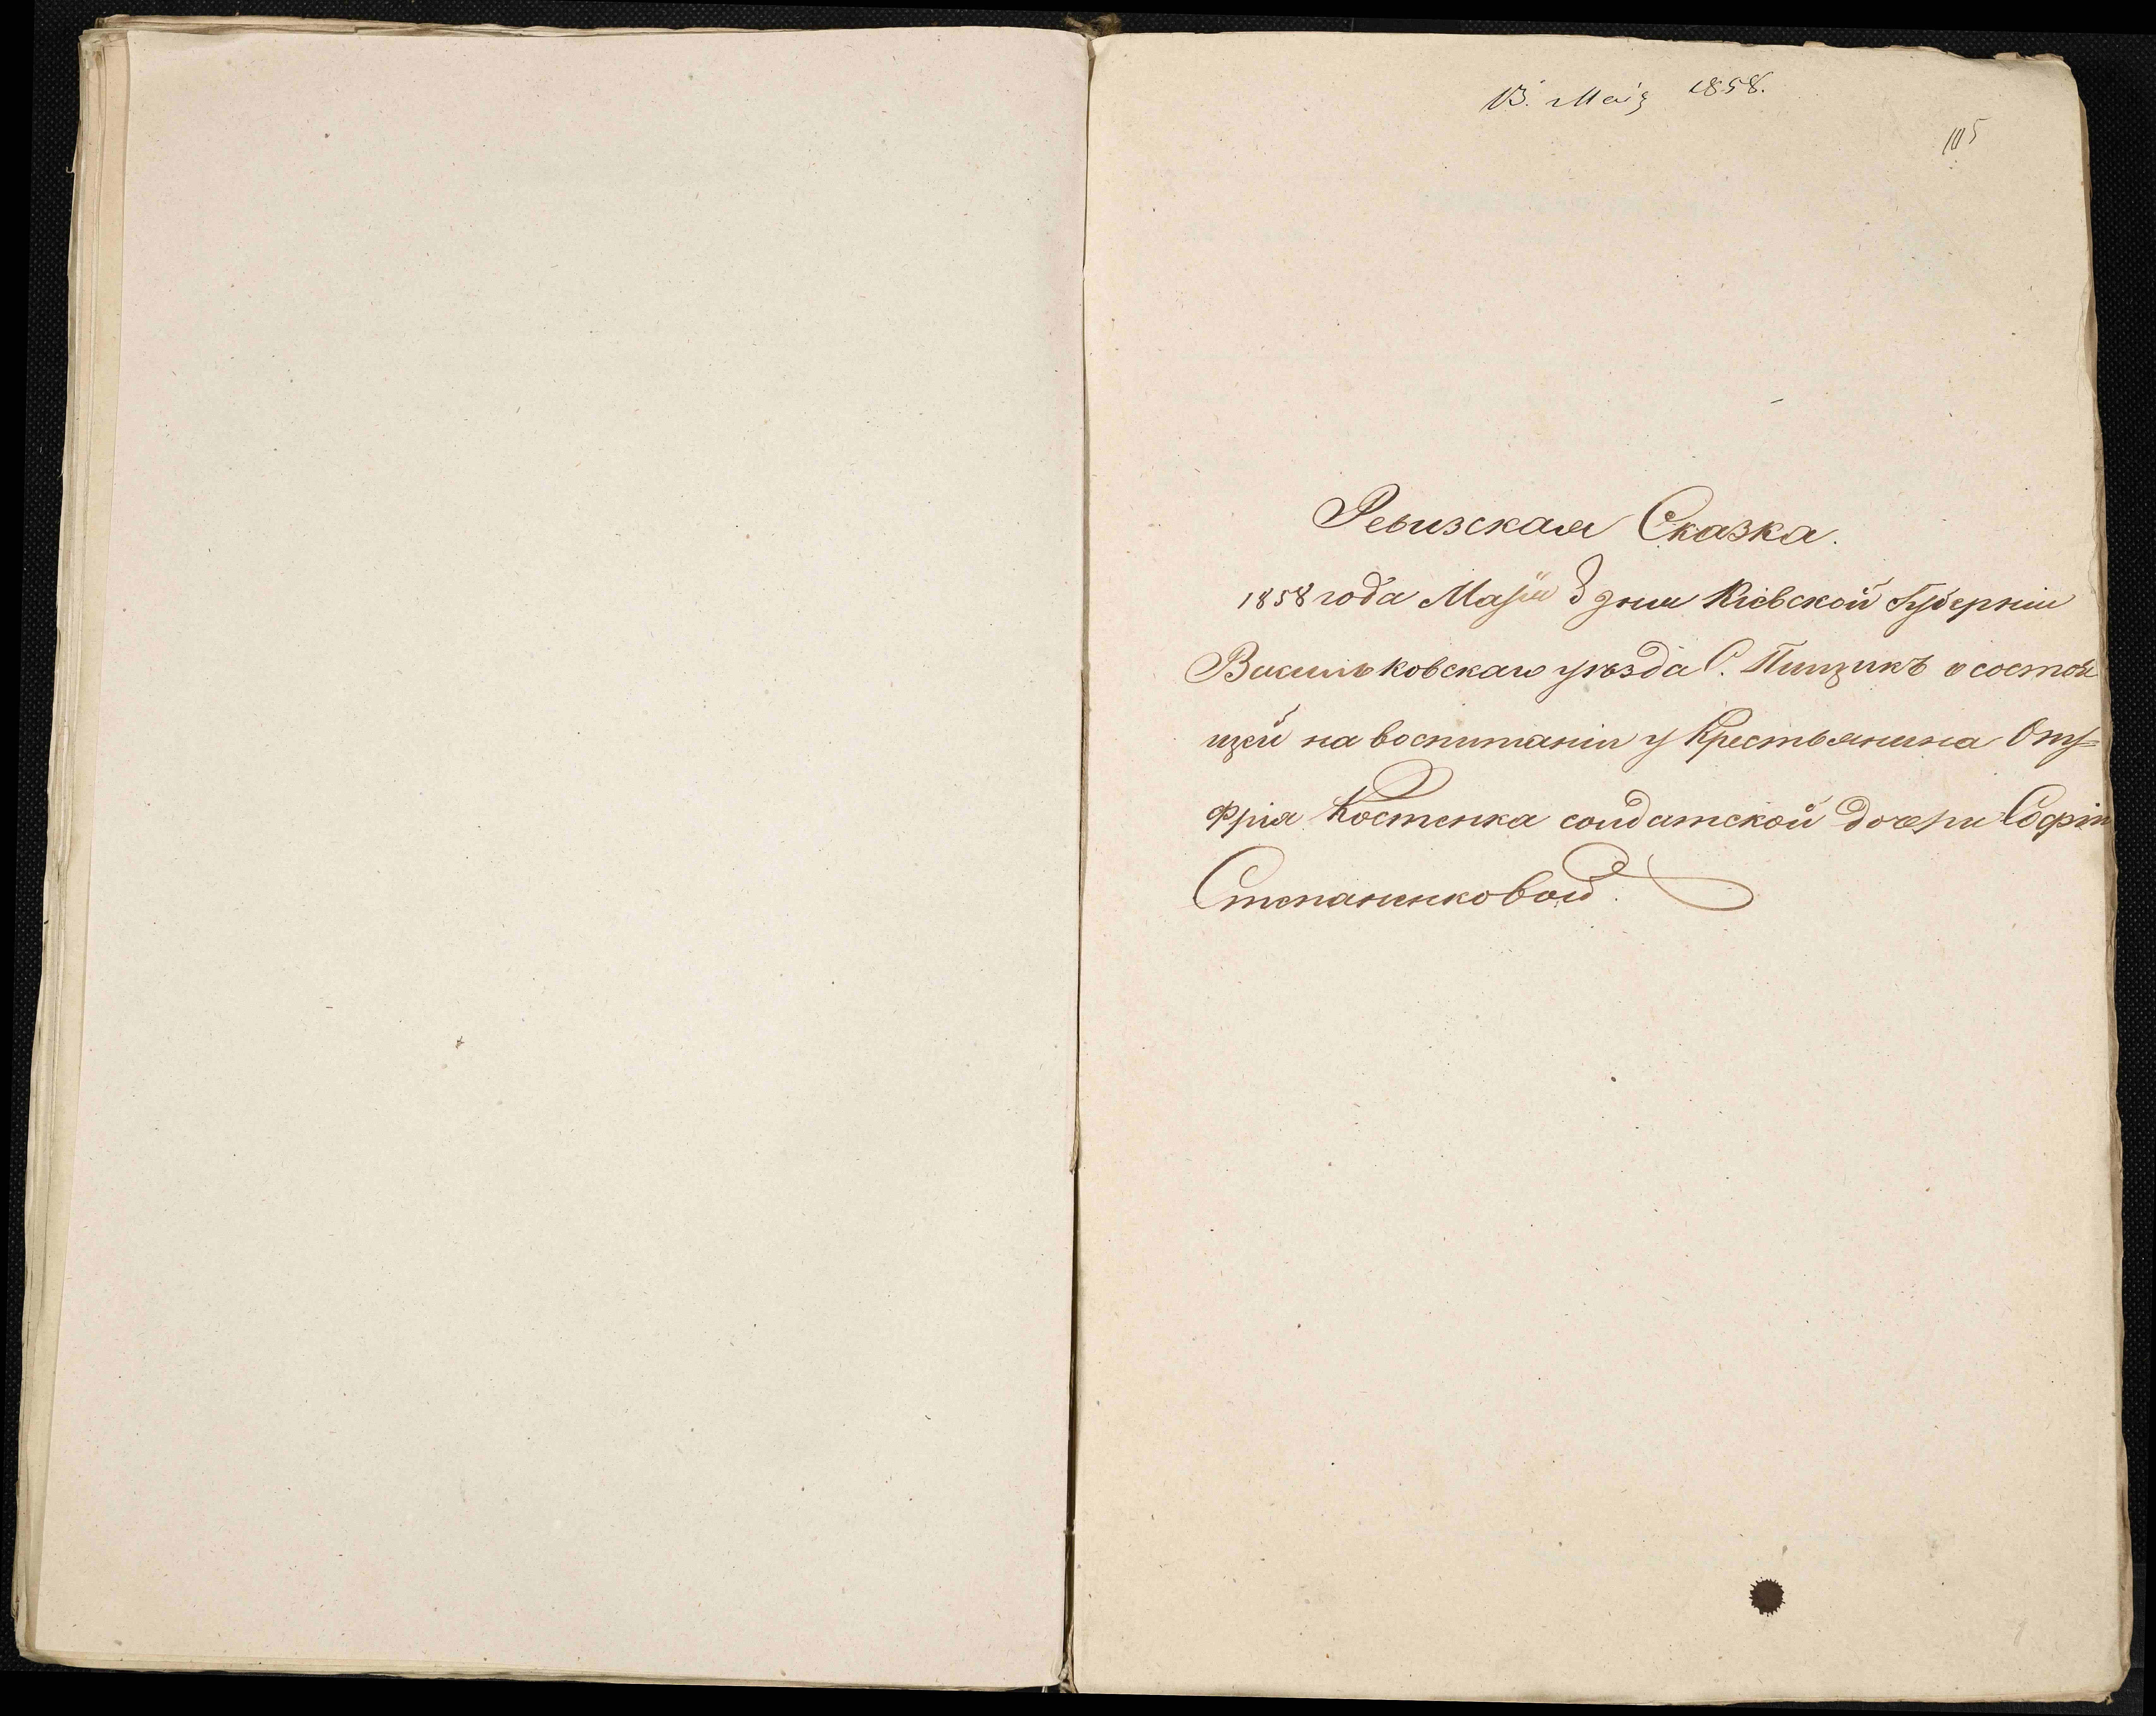 13. Маія 1858.
105
Ревизская Сказка.
1858 года Маія 3 дня Кіевской Губерніи
Васильковскаго уѣзда С. Пищикъ о состоя
щей на воспитаніи у Крестьянина Ону=
фрія Костенка солдатской дочери Софіи
Степаненковой.